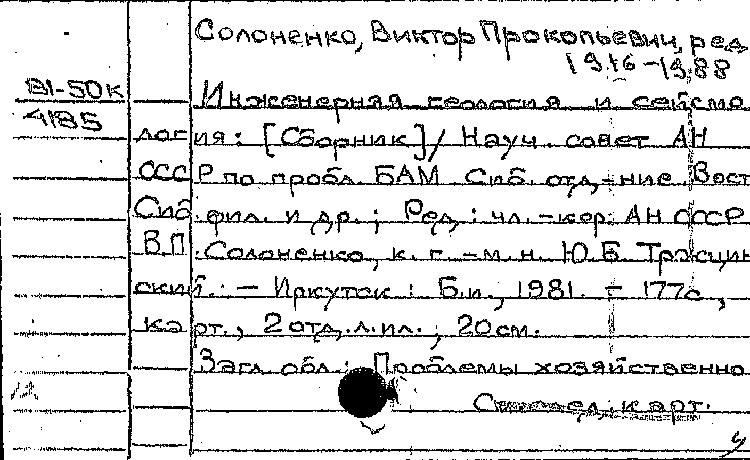 Солоненко, Виктор Прокопьевич, ред
1916-1988
81-50к Инженерная геология и сейсмо
4185
логия: [Сборник]/ Науч. совет АН
СССР по пробл. БАМ Сиб. отд-ние. Вост
Сиб. фил. и др.; Ред.: чл.-кор. АН СССР
В.П. Солоненко, к. г.-м.н. Ю.Б. Тржцин
ский. - Иркутск: Б.и., 1981. - 177с.,
карт., 2 отд. л. ил.; 20 см.
Загл. обл.: Проблемы хозяйственно
карт.